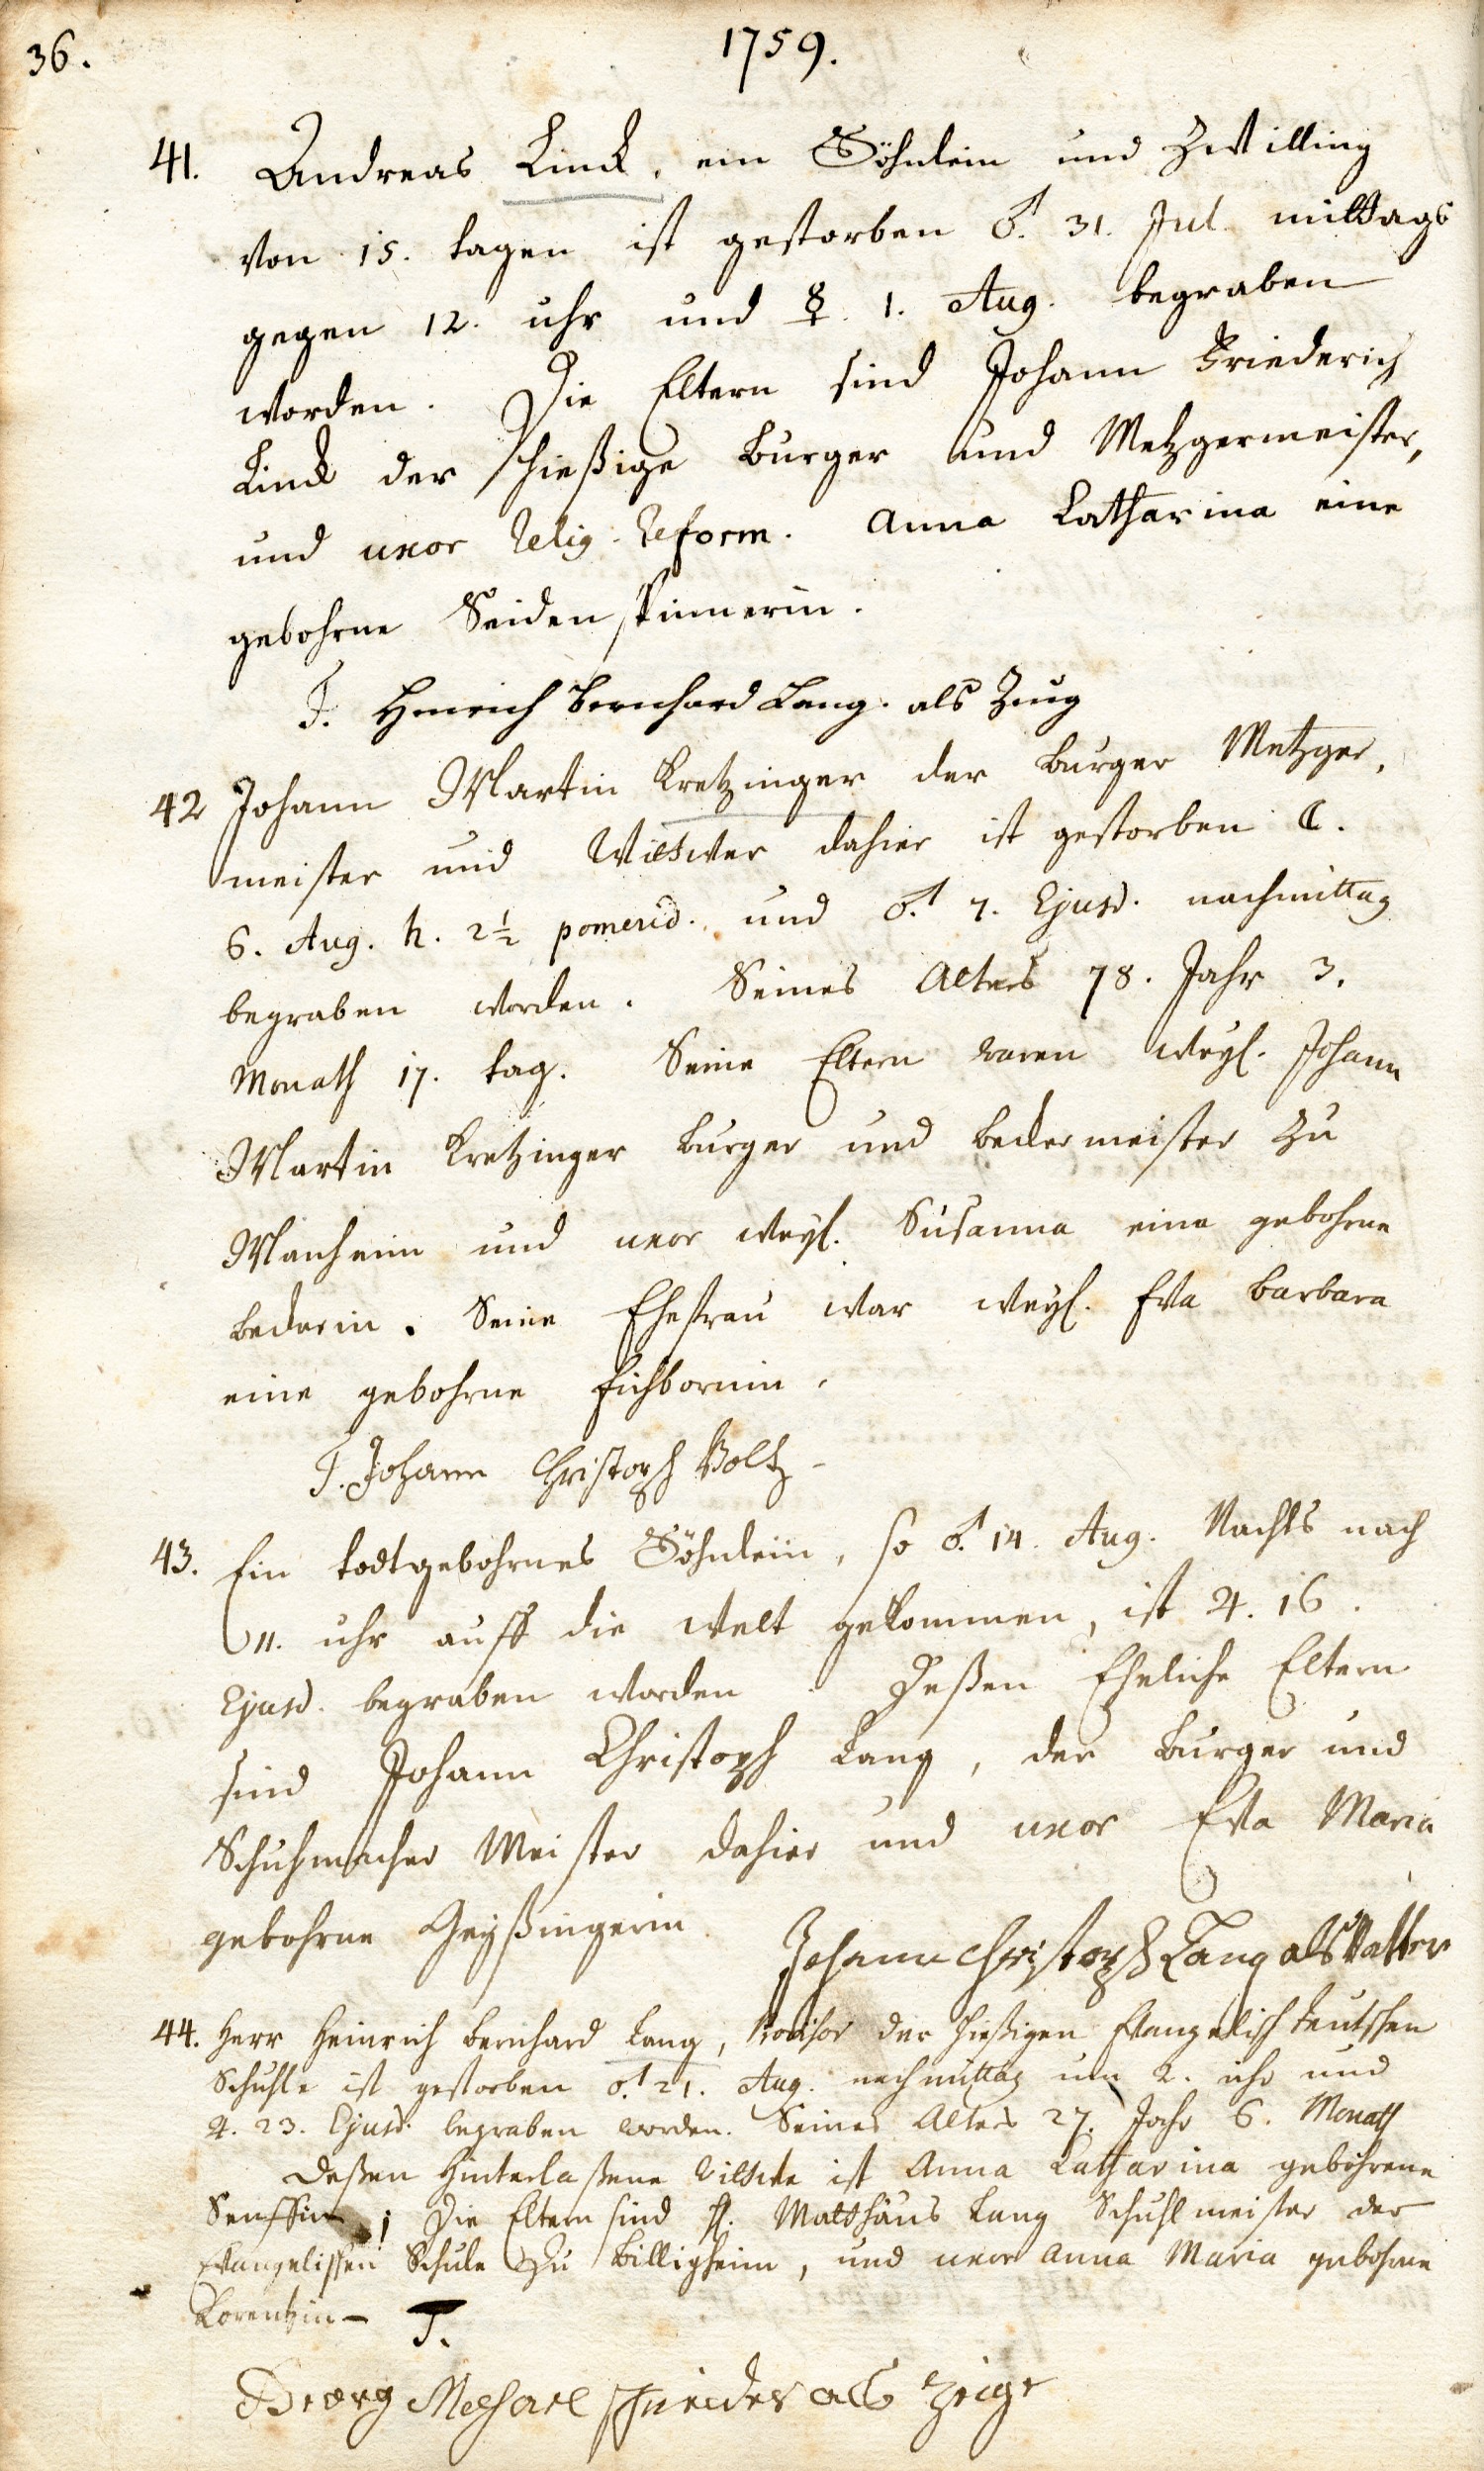 36.
1759.
41. Andreas Linck, ein Söhnlein und Zwilling
von 15. tagen ist gestorben ♂. 31. Jul. mittags
gegen 12. uhr und ☿. 1. Aug. begraben
worden. Die Eltern sind Johann Friederich
Linck der hießige Burger und Metzgermeister,
und uxor Relig. Reform. Anna Catharina eine
gebohrne Seidenspinnerin.
T. Henrich Bernhard Lang. als Zeug
42 Johann Martin Kretzinger der Burger Metzger,
meister und Wittwer dahier ist gestorben ☾.
6. Aug. h. 2½ pomerid. und ♂. 7. Ejusd. nachmittag
begraben worden. Seines Alters 78. Jahr 3.
Monath 17. tag. Seine Eltern waren weyl. Johann
Martin Kretzinger Burger und Beckermeister zu
Manheim und uxor weyl. Susanna eine gebohrne
Beckerin. Seine Ehefrau war weyl. Eva Barbara
eine gebohrne Eichbornin.
T. Johann Christoph Voltz
43. Ein todtgebohrnes Söhnlein, so ♂. 14. Aug. Nachts nach
11. uhr auff die Welt gekommen, ist ♃. 16.
Ejusd. begraben worden. Deßen Eheliche Eltern
sind Johann Christoph Lang, der Burger und
Schuhmacher Meister dahier und uxor Eva Maria
gebohrne Geyßingerin
Johann Christoph Lang als Vatter
44. Herr Heinrich Bernhard Lang, Provisor der hießigen Evangelisch teutschen
Schuhle ist gestorben ♂. 21. Aug. nachmittag um 2. uhr und
♃. 23. Ejusd. begraben worden. Seines Alters 27. Jahr 6. Monath
Deßen Hinterlaßene Wittwe ist Anna Catharina gebohrene
Senffin; Die Eltern sind H. Matthäus Lang Schuhlmeister der
Evangelischen Schule zu Billigheim, und uxor Anna Maria gebohrne
Lorentzin — T.
Georg Michael Schneider als Zeige